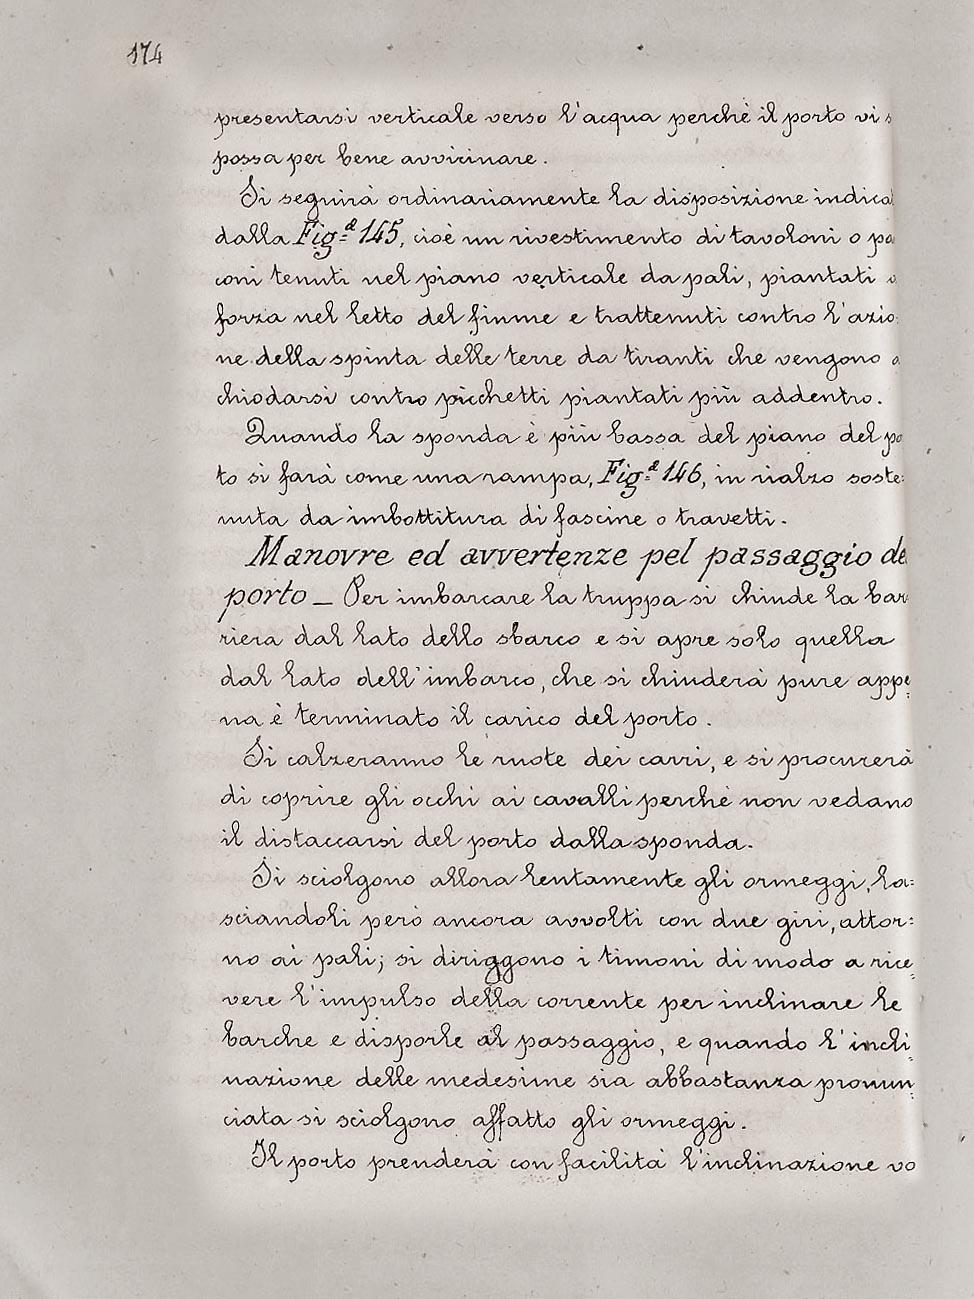 174
presentarsi verticale verso l'acqua perchè il porto vi s
possa per bene avvicinare.
Si seguirà ordinariamente la disposizione indica
dalla Fig.ª 145, cioè un rivestimento di tavoloni o pa
coni tenuti nel piano verticale da pali, piantati a
forza nel letto del fiume e trattenuti contro l'azio:
ne della spinta delle terre da tiranti che vengono a
chiodarsi contro picchetti piantati più addentro.
Quando la sponda è più bassa del piano del po
to si farà come una rampa, Fig.ª 146, in rialzo soste:
nuta da imbottitura di fascine o travetti.
Manovre ed avvertenze pel passaggio de
porto _ Per imbarcare la truppa si chiude la bar
riera dal lato dello sbarco e si apre solo quella
dal lato dell'imbarco, che si chiuderà pure appe:
na è terminato il carico del porto.
Si calzeranno le ruote dei carri, e si procurerà
di coprire gli occhi ai cavalli perchè non vedano
il distaccarsi del porto dalla sponda.
Si sciolgono allora lentamente gli ormeggi, la=
sciandoli però ancora avvolti con due giri, attor=
no ai pali; si diriggono i timoni di modo a rice=
vere l'impulso della corrente per inclinare le
barche e disporle al passaggio, e quando l'incli=
nazione delle medesime sia abbastanza pronun=
ciata si sciolgono affatto gli ormeggi.
Il porto prenderà con facilità l'inclinazione vo